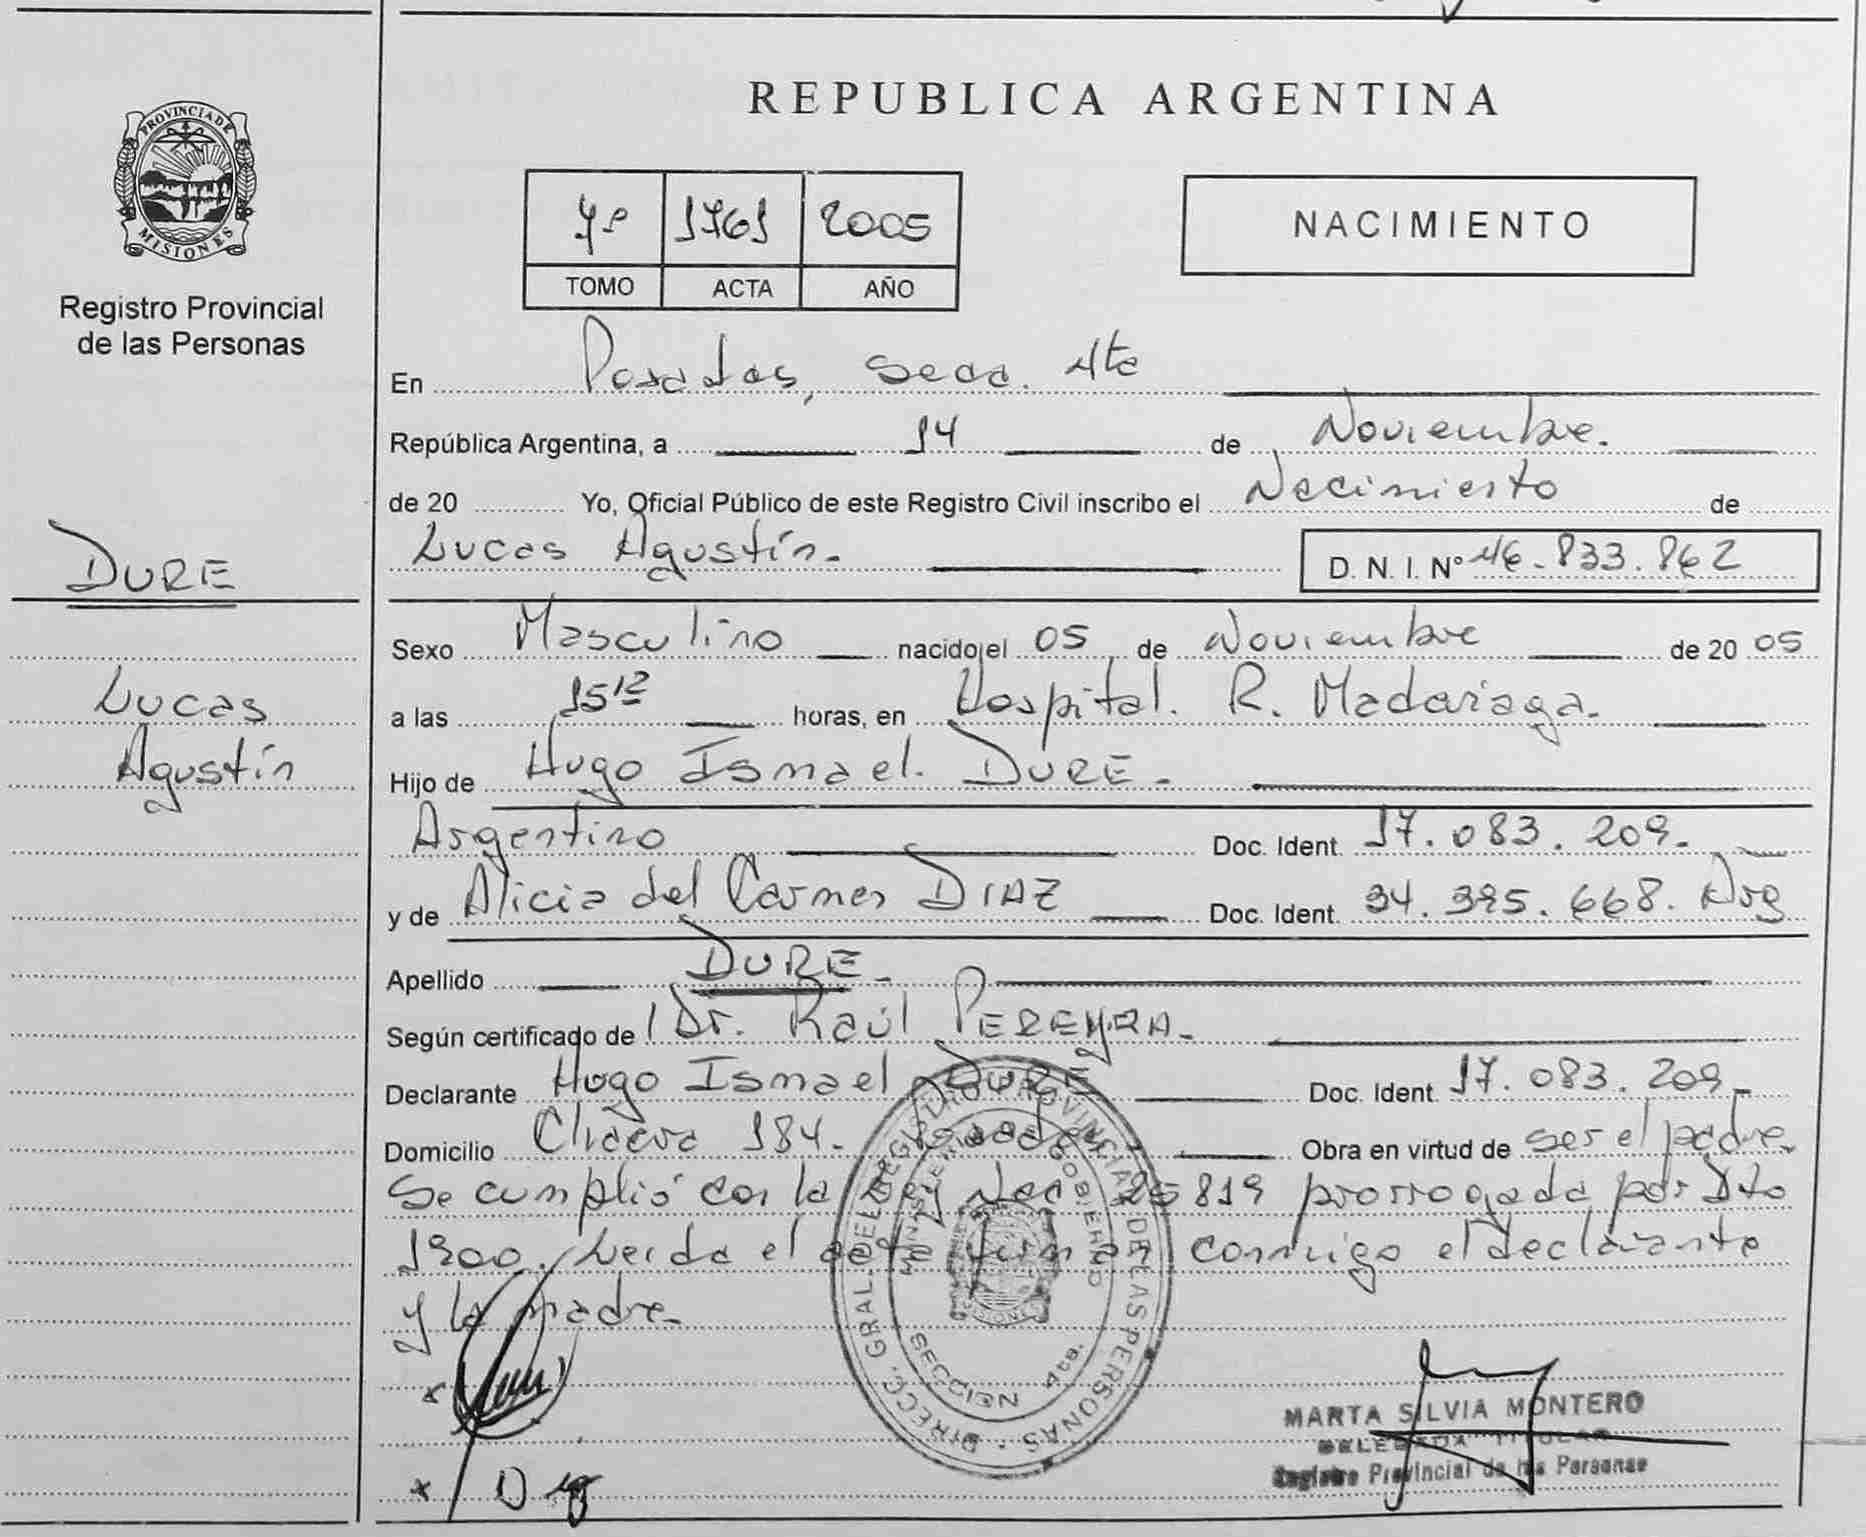 REPUBLICA ARGENTINA
PROVINCIA DE MISIONES
Registro Provincial
de las Personas
4º 1761 2005
TOMO ACTA AÑO
NACIMIENTO
En Posadas, Secc. 4ta
República Argentina, a 14 de Noviembre.
de 20 Yo, Oficial Público de este Registro Civil inscribo el Nacimiento de
Lucas Agustín. D. N. I. Nº 46.833.862
DURE
Lucas
Agustín
Sexo Masculino nacido el 05 de Noviembre de 20 05
a las 15 12 horas, en Hospital. R. Madariaga.
Hijo de Hugo Ismael. DURE.
Argentino Doc. Ident. 17.083.209.
y de Alicia del Carmen DIAZ Doc. Ident. 34.395.668. Arg
Apellido DURE.
Según certificado de Dr. Raúl PEREYRA.
Declarante Hugo Ismael DURE Doc. Ident. 17.083.209.
Domicilio 184. Posadas Obra en virtud de ser el padre.
Se cumplió con la Ley Nac. 25819 prorrogada por Dto
1900. Leida el acta firman conmigo el declarante
y la madre.
DIRECC. GRAL. DEL REGISTRO PROVINCIAL DE LAS PERSONAS
MINISTERIO DE GOBIERNO
SECCION 4ta.
MARTA SILVIA MONTERO
DELEGADA TITULAR
Registro Provincial de las Personas